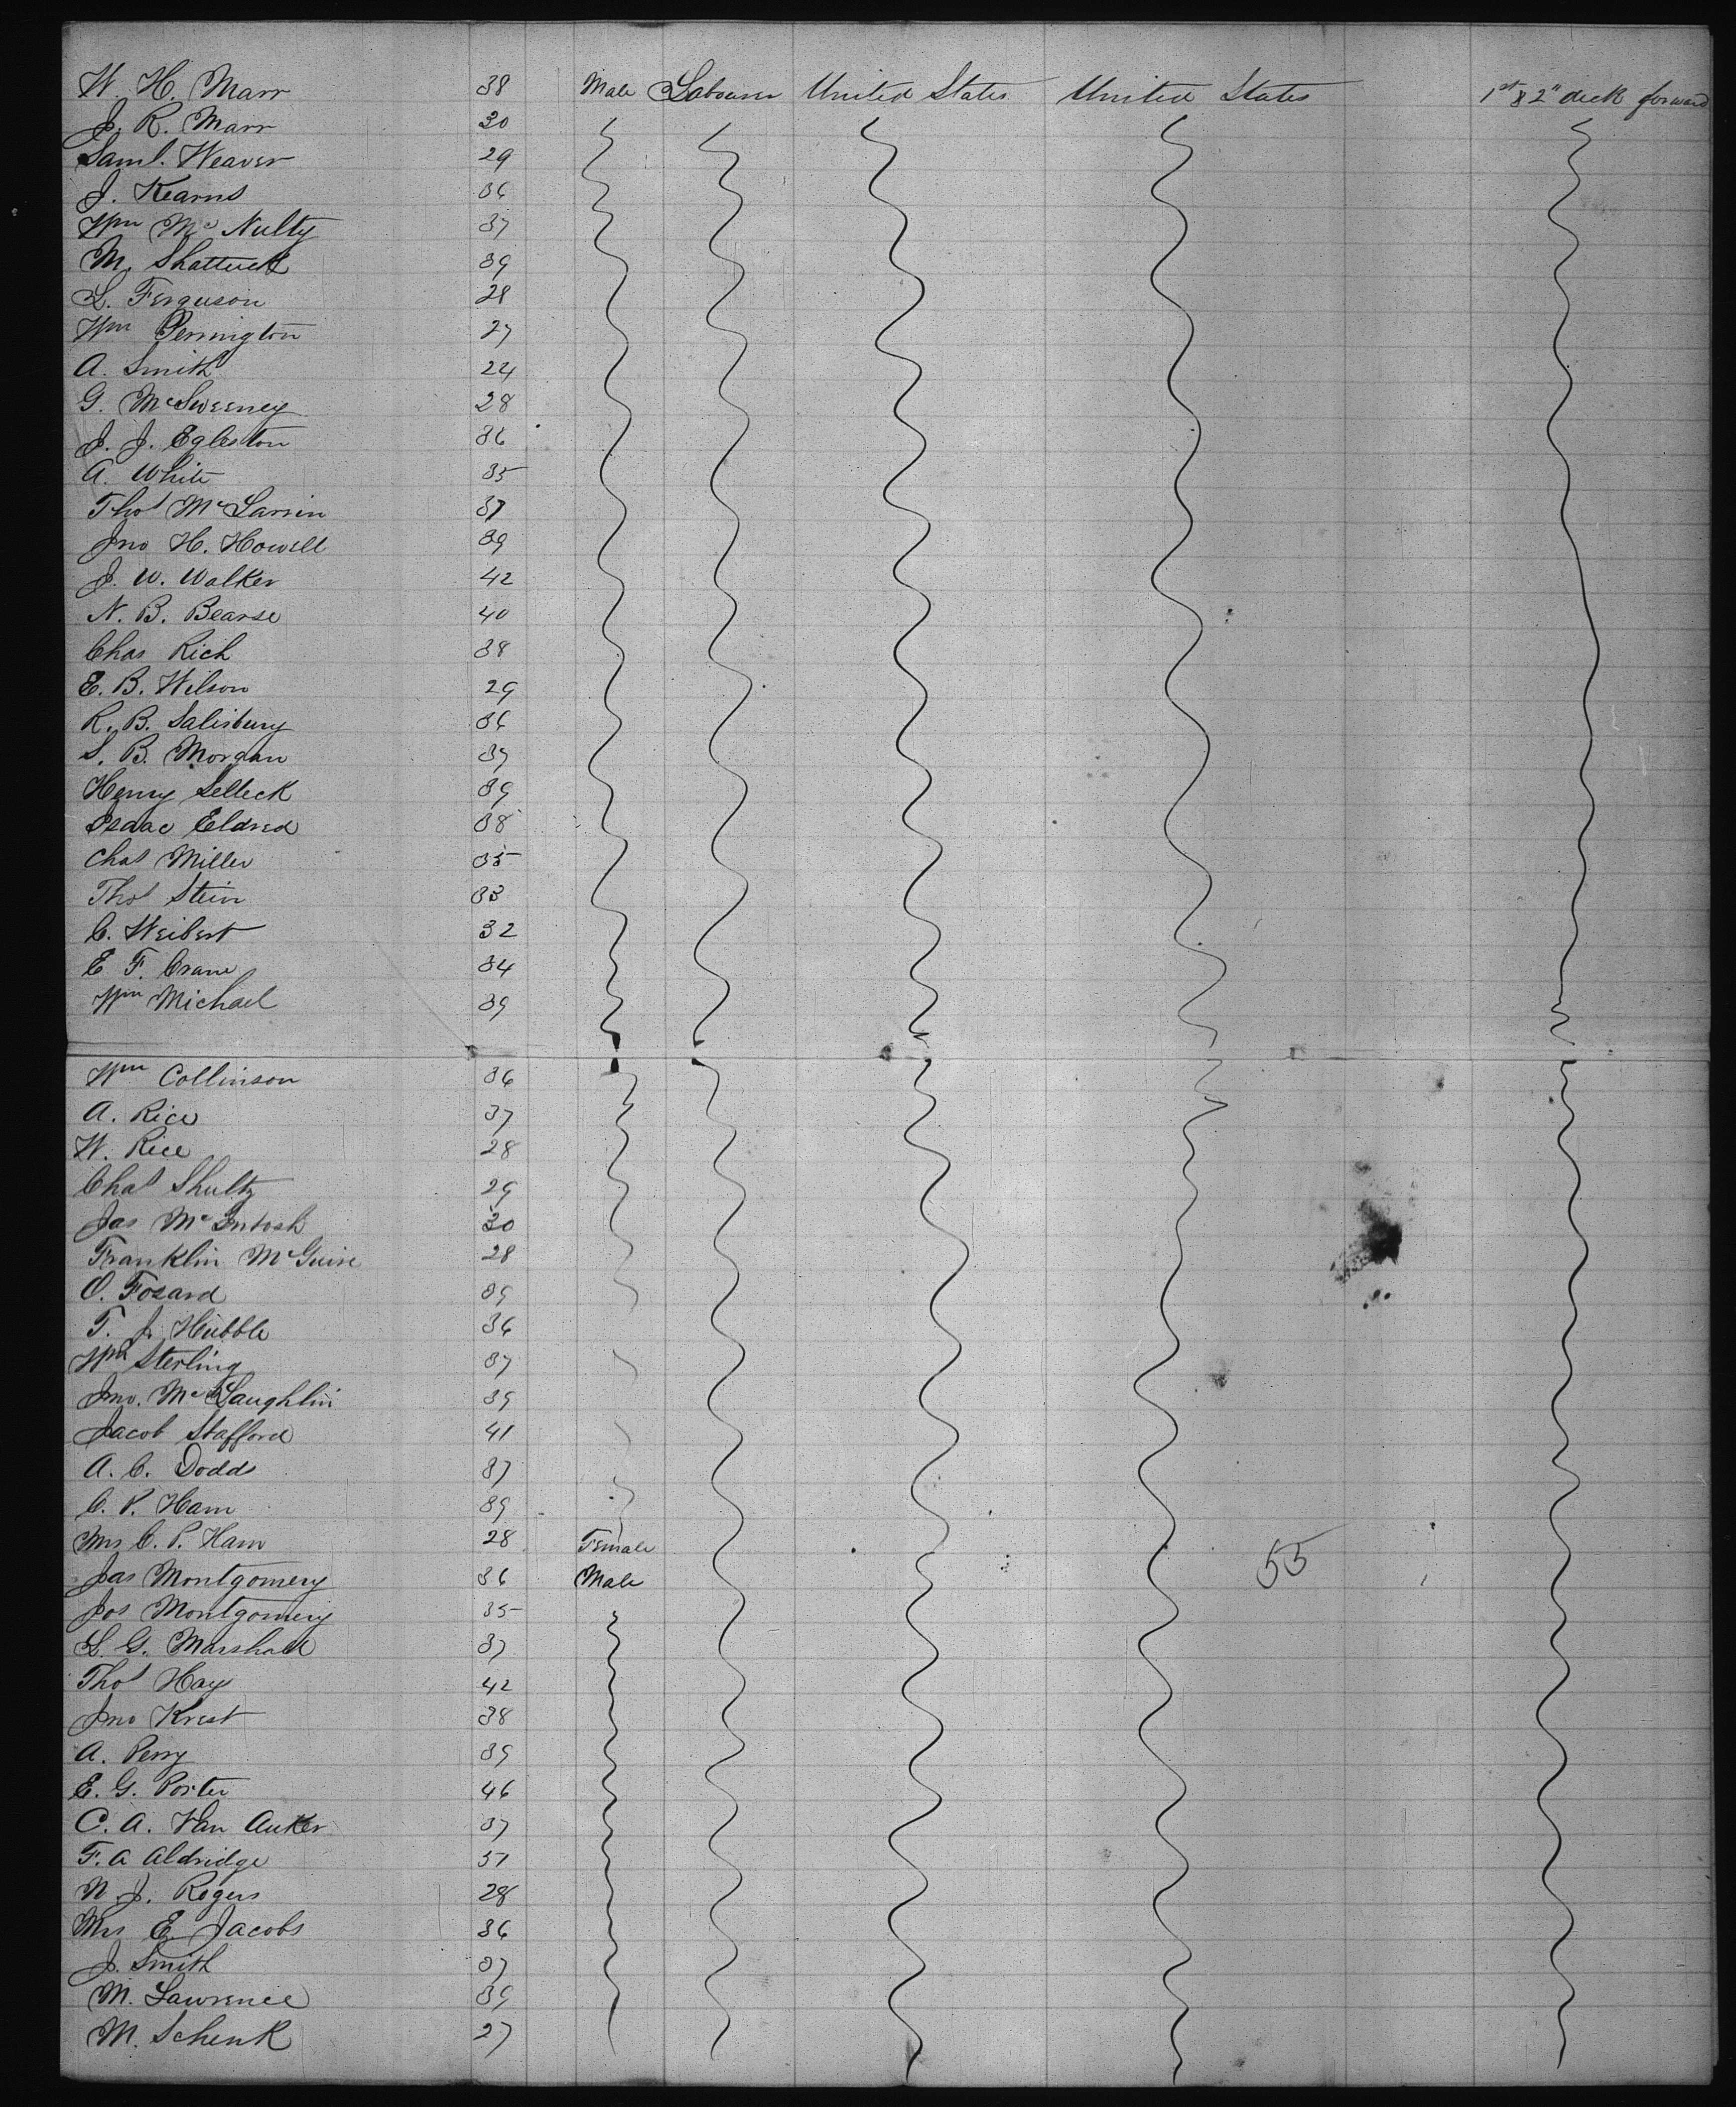 W. H. Marr 38 Male Labourer United States United States 1st & 2" deck forward
J. R. Marr 30
Saml. Weaver 29
J. Kearns 36
Wm Mc Nulty 37
M. Shattuck 39
L. Ferguson 28
Wm Pennington 27
A. Smith 24
G. McSweeney 28
J. J. Egleston 36
A. White 35
Thos McLarrin 37
Jno H. Howell 39
J. W. Walker 42
N. B. Bearse 40
Chas Rich 38
E. B. Wilson 29
R. B. Salisbury 36
S. B. Morgan 37
Henry Selleck 39
Isaac Eldred 38
Chas Miller 35
Thos Stein 33
C. Weibert 32
E F. Crane 34
Wm Michael 39
Wm Collinson 36
A. Rice 37
W. Rice 28
Chas Shultz 29
Jas McIntosh 30
Franklin McGuire 28
O. Fosard 39
T. J. Hubble 36
Wm Sterling 37
Jno. McLaughlin 39
Jacob Stafford 41
A. C. Dodds 37
C. P. Ham 39
Mrs C. P. Ham 28 Female
Jas Montgomery 36 Male 55
Jos Montgomery 35
L. G. Marshall 37
Thos Hay 42
Jno Krest 38
A. Perry 39
E. G. Porter 46
C. A. Van Auker 37
F. A Aldridge 51
N. J. Rogers 28
Mrs E Jacobs 36
J. Smith 37
M. Lawrence 39
M. Schenk 27